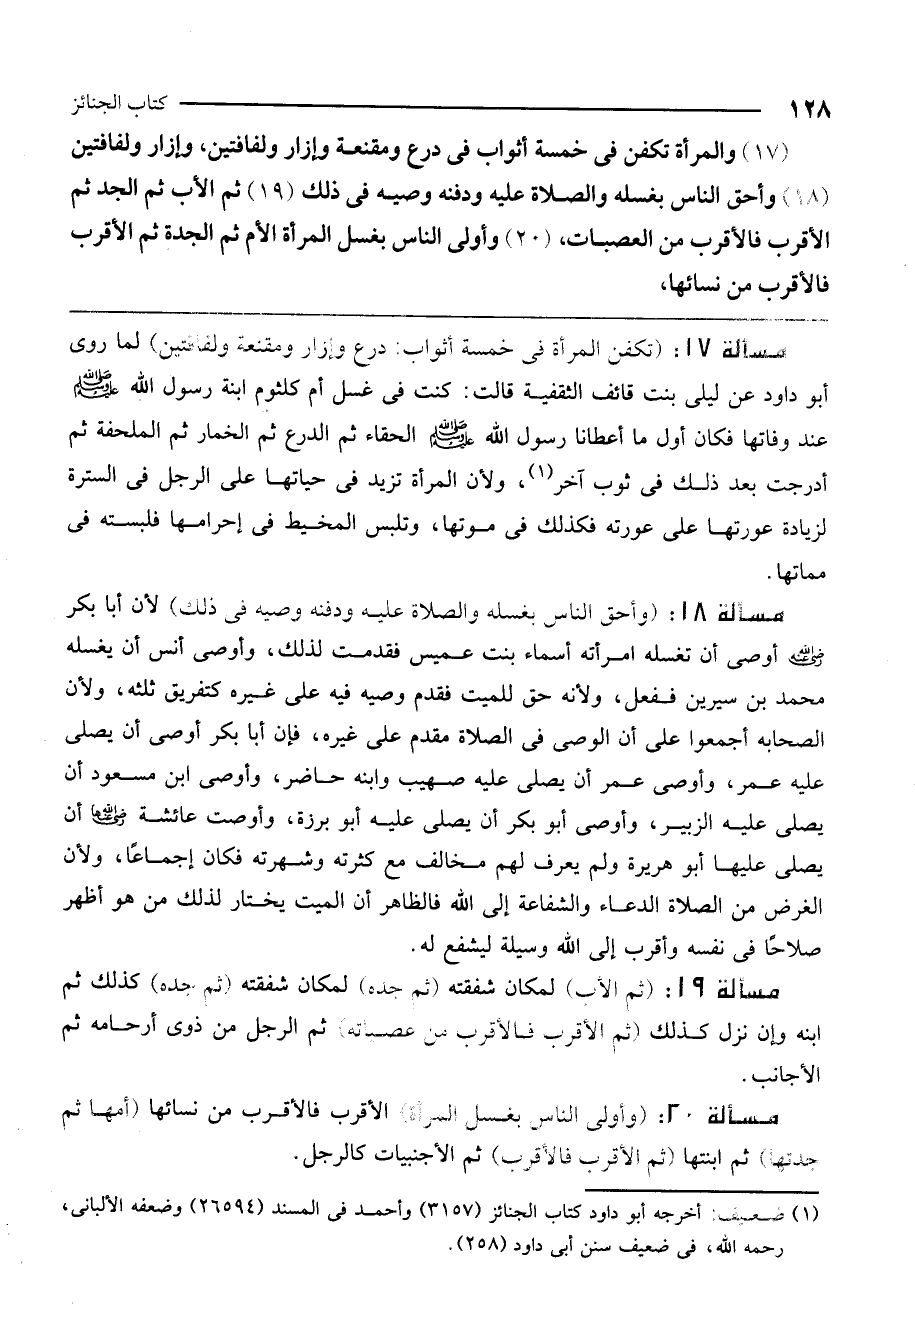 ١٢٨ كتاب الجنائز
(١٧) والمرأة تكفن فى خمسة أثواب فى درع ومقنعة وإزار ولفافتين، وإزار ولفافتين
(١٨) وأحق الناس بغسله والصلاة عليه ودفنه وصيه فى ذلك (١٩) ثم الأب ثم الجد ثم
الأقرب فالأقرب من العصبات، (٢٠) وأولى الناس بغسل المرأة الأم ثم الجدة ثم الأقرب
فالأقرب من نسائها،
مسألة ١٧: (تكفن المرأة فى خمسة أثواب: درع وإزار ومقنعة ولفافتين) لما روى
أبو داود عن ليلى بنت قائف الثقفية قالت: كنت فى غسل أم كلثوم ابنة رسول الله ﷺ
عند وفاتها فكان أول ما أعطانا رسول الله ﷺ الحقاء ثم الدرع ثم الخمار ثم الملحفة ثم
أدرجت بعد ذلك فى ثوب آخر(١)، ولأن المرأة تزيد فى حياتها على الرجل فى السترة
لزيادة عورتها على عورته فكذلك فى موتها، وتلبس المخيط فى إحرامها فلبسته فى
مماتها.
مسألة ١٨: (وأحق الناس بغسله والصلاة عليه ودفنه وصيه فى ذلك) لأن أبا بكر
رضي الله عنه أوصى أن تغسله امرأته أسماء بنت عميس فقدمت لذلك، وأوصى أنس أن يغسله
محمد بن سيرين ففعل، ولأنه حق للميت فقدم وصيه فيه على غيره كتفريق ثلثه، ولأن
الصحابه أجمعوا على أن الوصى فى الصلاة مقدم على غيره، فإن أبا بكر أوصى أن يصلى
عليه عمر، وأوصى عمر أن يصلى عليه صهيب وابنه حاضر، وأوصى ابن مسعود أن
يصلى عليه الزبير، وأوصى أبو بكر أن يصلى عليه أبو برزة، وأوصت عائشة رضي الله عنها أن
يصلى عليها أبو هريرة ولم يعرف لهم مخالف مع كثرته وشهرته فكان إجماعًا، ولأن
الغرض من الصلاة الدعاء والشفاعة إلى الله فالظاهر أن الميت يختار لذلك من هو أظهر
صلاحًا فى نفسه وأقرب إلى الله وسيلة ليشفع له.
مسألة ١٩: (ثم الأب) لمكان شفقته (ثم جده) لمكان شفقته (ثم جده) كذلك ثم
ابنه وإن نزل كذلك (ثم الأقرب فالأقرب من عصباته) ثم الرجل من ذوى أرحامه ثم
الأجانب.
مسألة ٢٠: (وأولى الناس بغسل المرأة) الأقرب فالأقرب من نسائها (أمها ثم
جدتها) ثم ابنتها (ثم الأقرب فالأقرب) ثم الأجنبيات كالرجل.
(١) ضعيف: أخرجه أبو داود كتاب الجنائز (٣١٥٧) وأحمد فى المسند (٢٦٥٩٤) وضعفه الألبانى،
رحمه الله، فى ضعيف سنن أبى داود (٢٥٨).